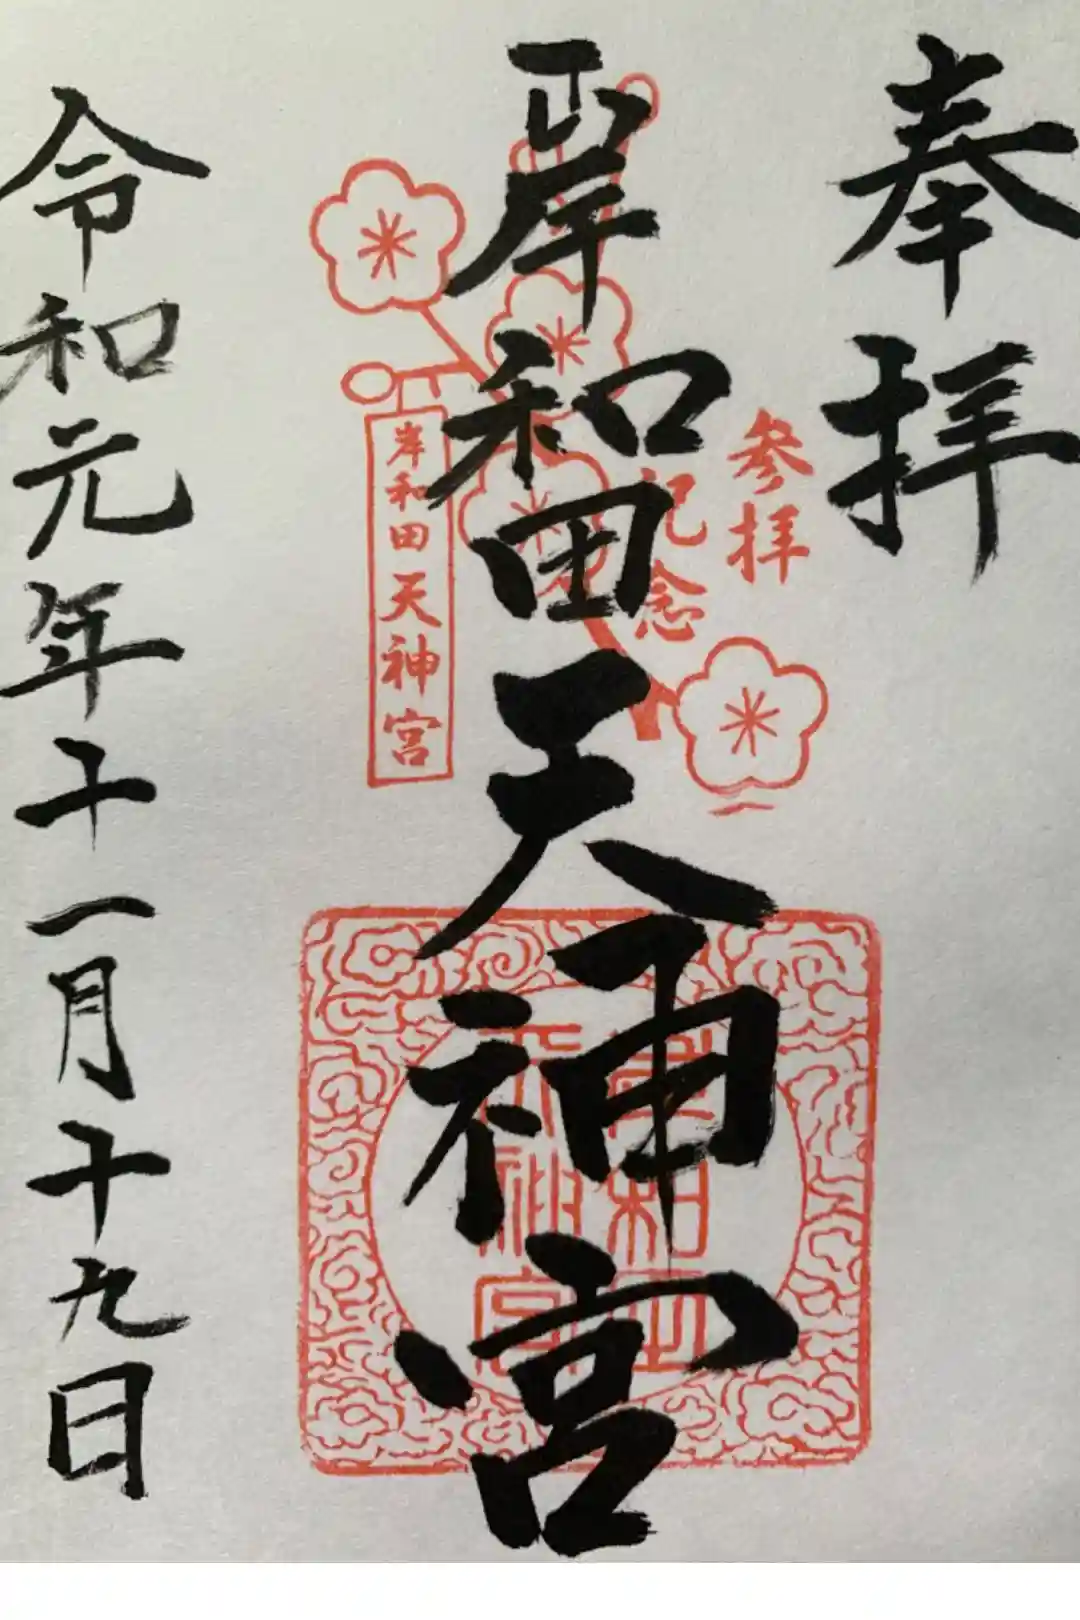 奉拝
参拝
記念
岸和田天神宮
岸和田天神宮
岸和田
天神宮
令和元年十一月十九日